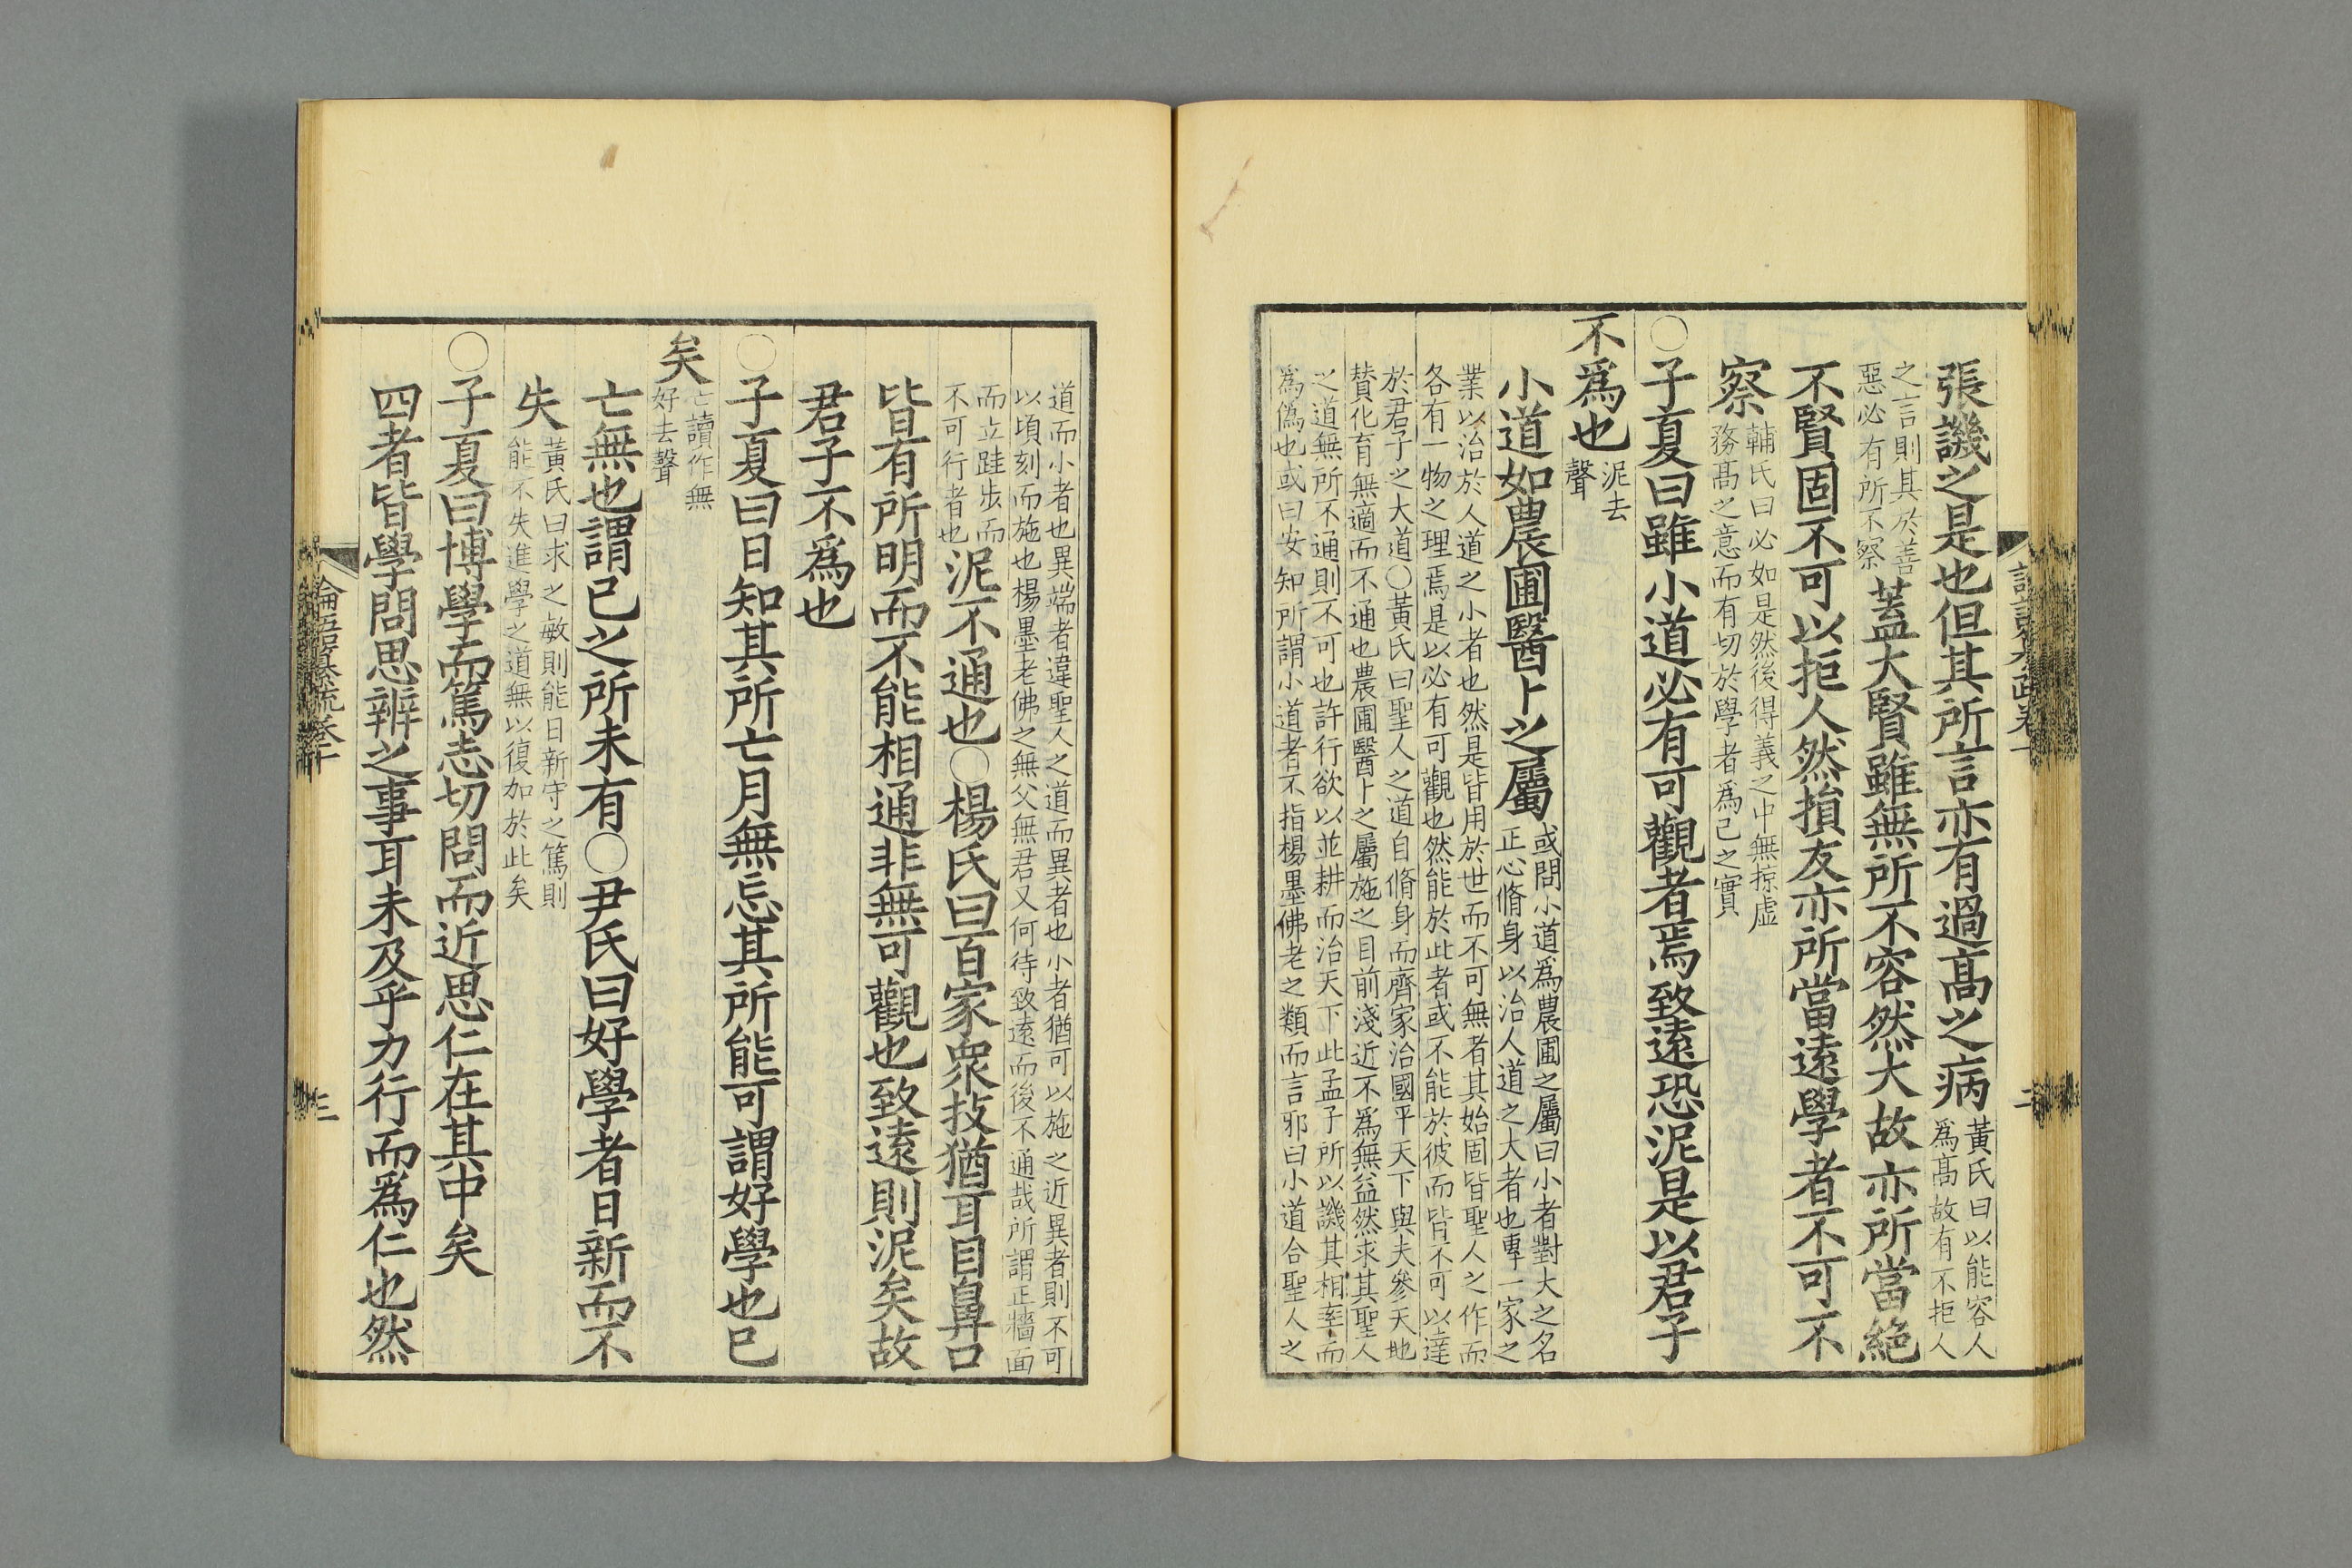 張譏之是也但其所言亦有過高之病黃氏曰以能容人
爲高故有不拒人
之言則其於善
惡必有所不察蓋大賢雖無所不容然大故亦所當絕
不賢固不可以拒人然損友亦所當遠學者不可不
察輔氏曰必如是然後得義之中無掠虛
務高之意而有切於學者爲己之實
○子夏曰雖小道必有可觀者焉致遠恐泥是以君子
不爲也泥去
聲
小道如農圃醫卜之屬或問小道爲農圃之屬曰小者對大之名
正心脩身以治人道之大者也專一家之
業以治於人道之小者也然是皆用於世而不可無者其始固皆聖人之作而
各有一物之理焉是以必有可觀也然能於此者或不能於彼而皆不可以達
於君子之大道○黃氏曰聖人之道自脩身而齊家治國平天下與夫參天地
賛化育無適而不通也農圃醫卜之屬施之目前淺近不爲無益然求其聖人
之道無所不通則不可也許行欲以並耕而治天下此孟子所以譏其相率而
爲僞也或曰安知所謂小道者不指楊墨佛老之類而言邪曰小道合聖人之
道而小者也異端者違聖人之道而異者也小者猶可以施之近異者則不可
以頃刻而施也楊墨老佛之無父無君又何待致遠而後不通哉所謂正牆面
而立跬步而
不可行者也泥不通也○楊氏曰百家衆技猶耳目鼻口
皆有所明而不能相通非無可觀也致遠則泥矣故
君子不爲也
○子夏曰日知其所亡月無忘其所能可謂好學也已
矣亡讀作無
好去聲
亡無也謂己之所未有○尹氏曰好學者日新而不
失黃氏曰求之敏則能日新守之篤則
能不失進學之道無以復加於此矣
○子夏曰博學而篤志切問而近思仁在其中矣
四者皆學問思辨之事耳未及乎力行而爲仁也然
論語纂疏卷十
三